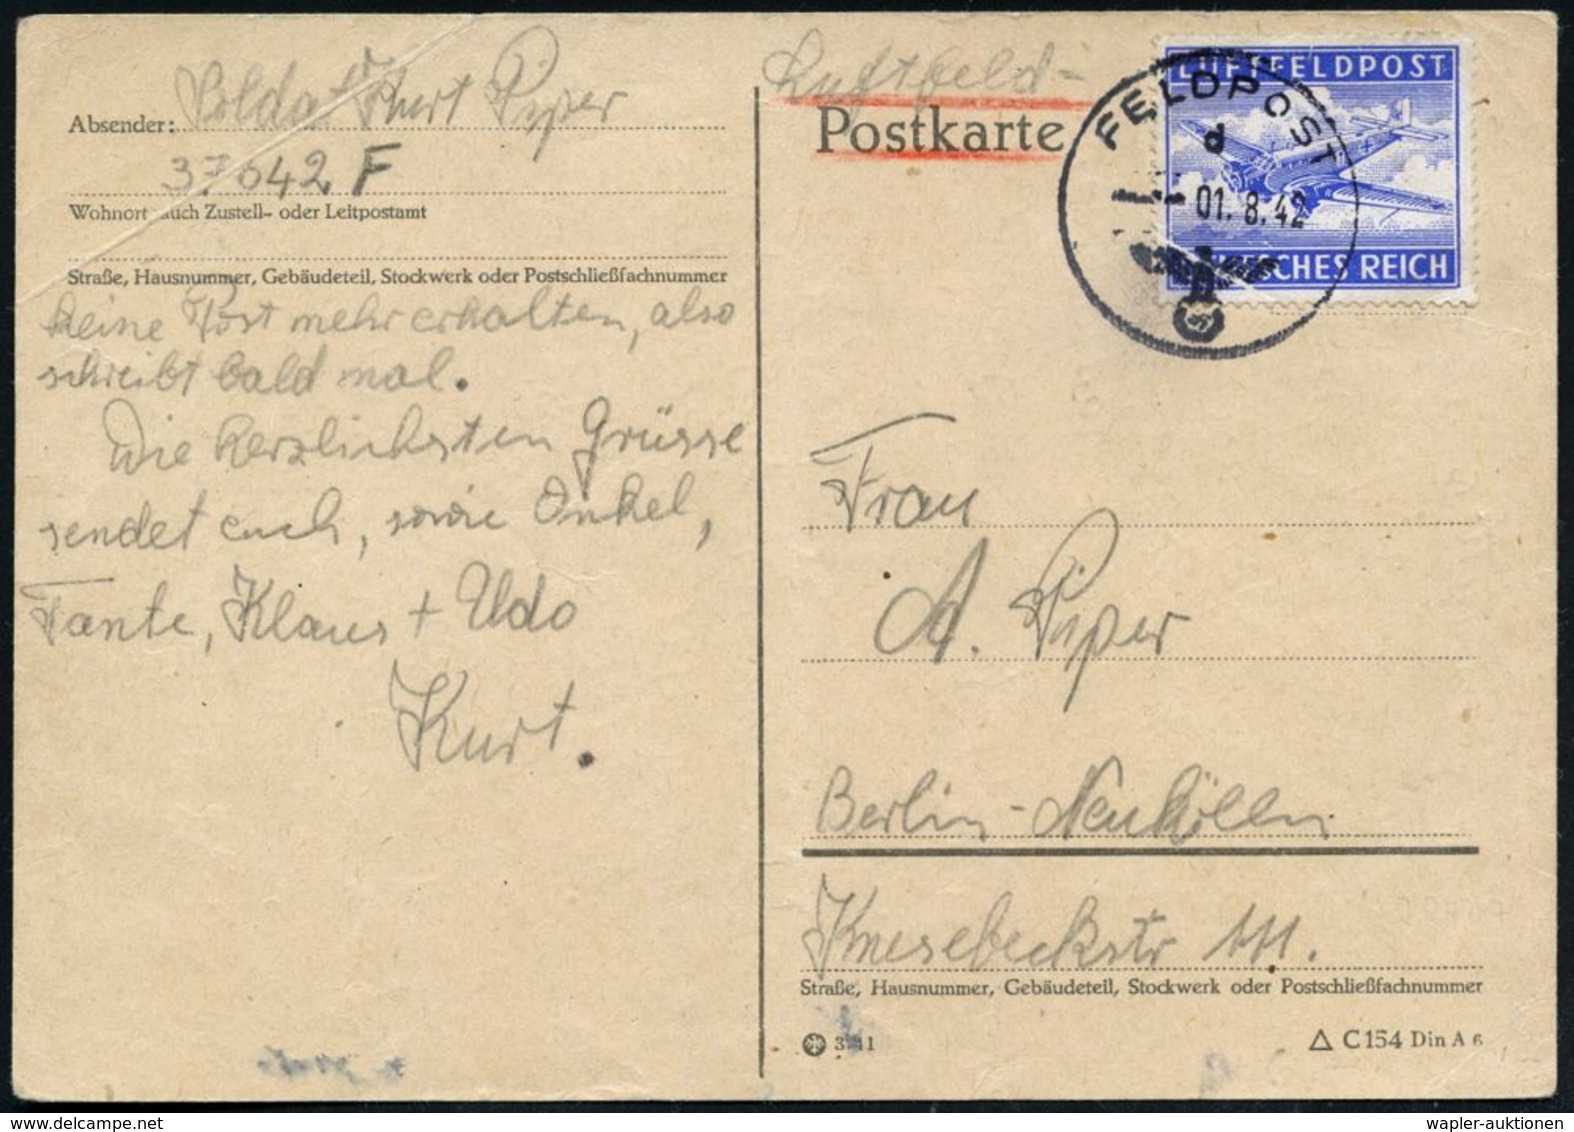 Absender: Soldat Kurt Piper
37642 F
Wohnort auch Zustell- oder Leitpostamt
Straße, Hausnummer, Gebäudeteil, Stockwerk oder Postschließfachnummer
keine Post mehr erhalten, also
schreibt bald mal.
Die herzlichsten Grüsse
sendet euch, sowie Onkel,
Tante, Klaus + Udo
Kurt.
Luftfeld-
Postkarte
LUFTFELDPOST
DEUTSCHES REICH
FELDPOST
d
01.8.42
Frau
A. Piper
Berlin-Neukölln
Knesebeckstr 111.
Straße, Hausnummer, Gebäudeteil, Stockwerk oder Postschließfachnummer
C 154 Din A 6
wapler-auktionen